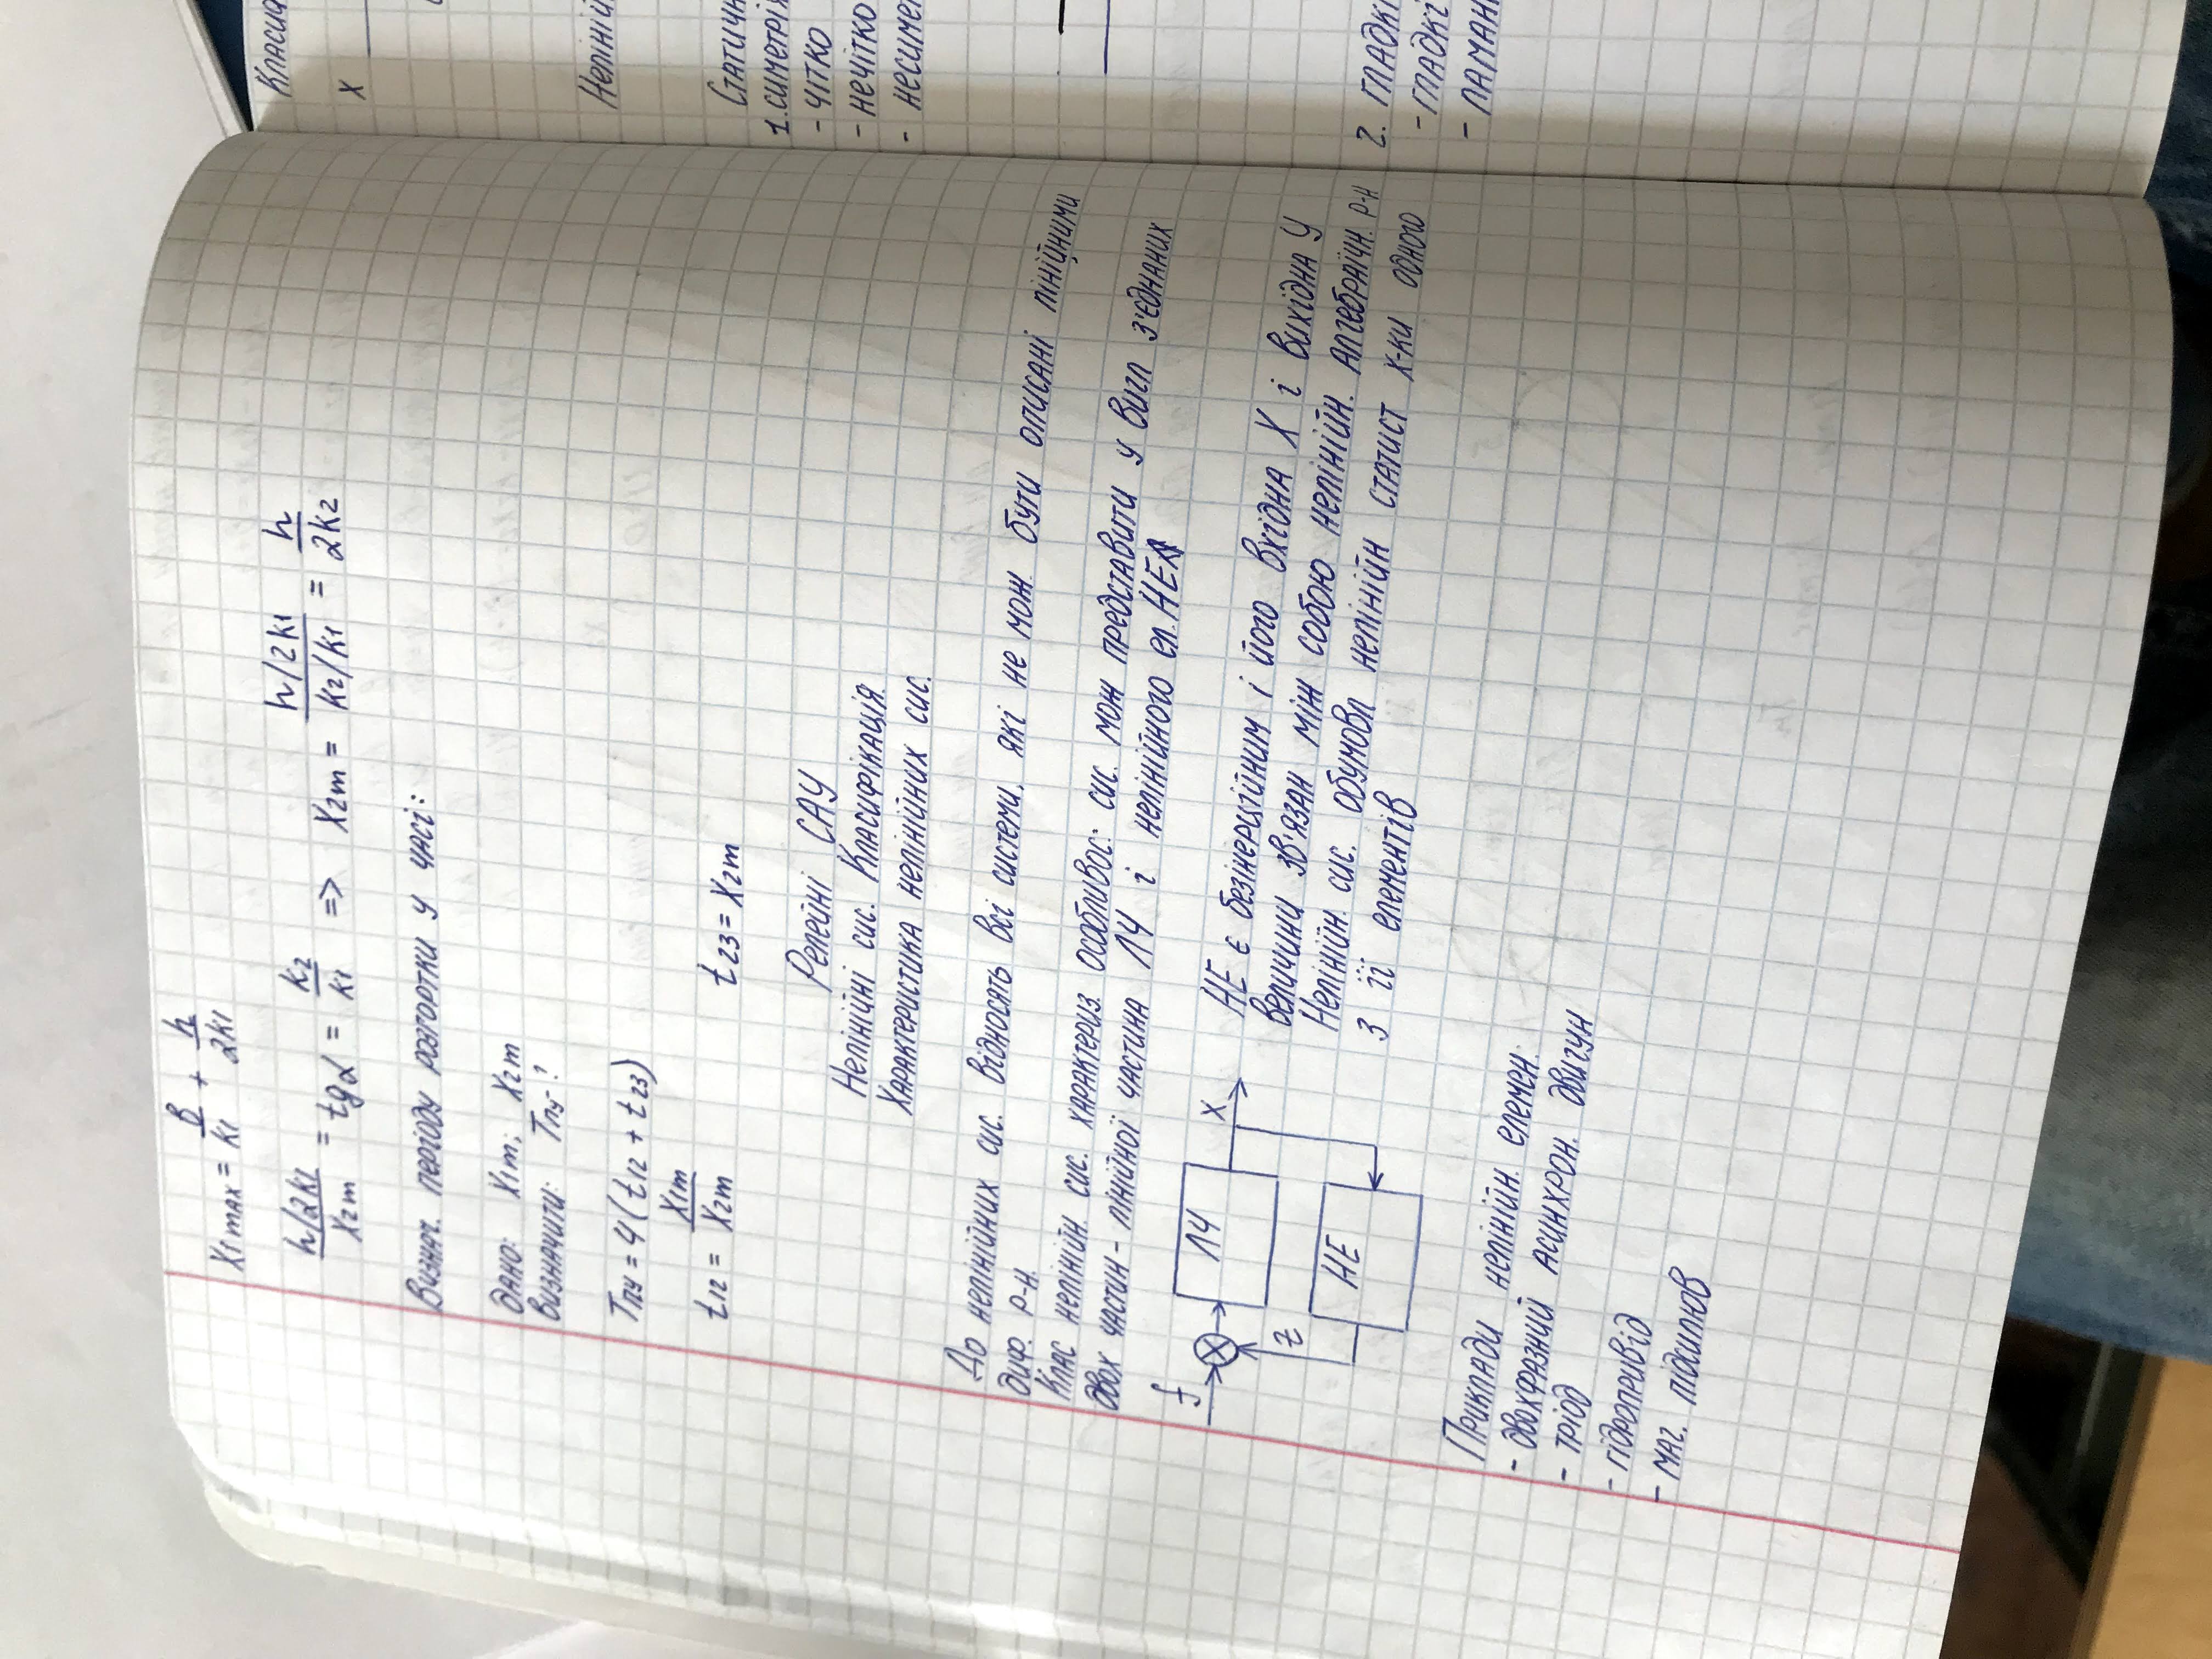 X1max = в/k1 + h/2k1
(h/2k1)/X2m = tgα = k2/k1 => X2m = (h/2k1)/(k2/k1) = h/2k2
Визнач. періоду розгортки у часі:
Дано: X1m; X2m
Визначити: Tпу-?
Tпу = 4(t12 + t23)
t12 = X1m/X2m t23 = X2m
Релейні САУ
Нелінійні сис. Класифікація.
Характеристика нелінійних сис.
До нелінійних сис. відносять всі системи, які не мож. бути описані лінійними
диф. р-н.
Клас нелінійн. сис. характериз. особливос: сис. мож представити у вигл з'єднаних
двох частин - лінійної частина ЛЧ і нелінійного ел. НЕ
f
ЛЧ
X
z
НЕ
НЕ є безінерційним і його вхідна X і вихідна У
величини зв'язан між собою нелінійн. алгебраїчн. р-н
Нелінійн. сис. обумовл нелінійн статист х-ки одного
з її елементів
Приклади нелінійн. елемен:
- двохфазний асинхрон. двигун
- тріод
- гідропривід
- маг. підсилюв
Класиф
X
Неліній
Статичн
1. симетрія
- чітко
- нечітко
- несимет
2. гладкі
- гладкі
- ламан